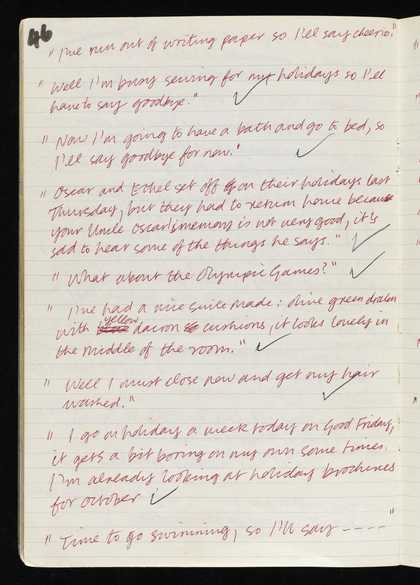 46
"I've run out of writing paper so I'll say cheerio."
"Well I'm busy sewing for my holidays so I'll
have to say goodbye."
"Now I'm going to have a bath and go to bed, so
I'll say goodbye for now."
"Oscar and Ethel set off on their holidays last
Thursday, but they had to return home because
your Uncle Oscar's memory is not very good, it's
sad to hear some of the things he says."
"What about the Olympic Games?"
"I've had a nice suite made: olive green dralon
with yellow dacron cushions, it looks lovely in
the middle of the room."
"Well I must close now and get my hair
washed."
"I go on holiday a week today on Good Friday,
it gets a bit boring on my own some times.
I'm already looking at holiday brochures
for October
"Time to go swimming, so I'll say ----"